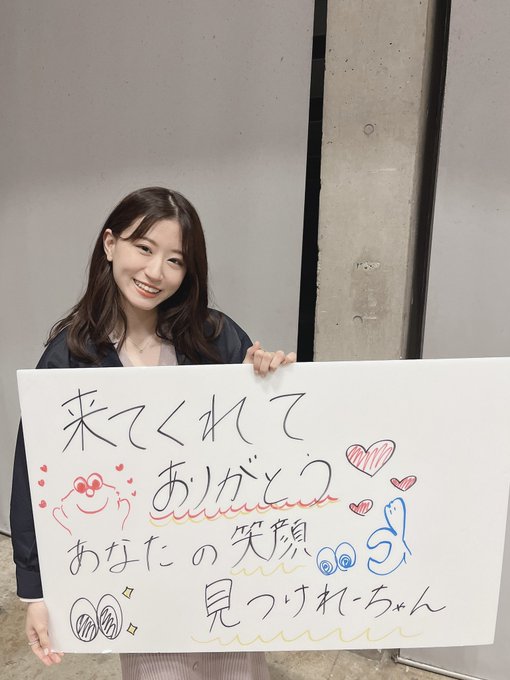 来てくれて
ありがとう
あなたの笑顔
見つけれーちゃん